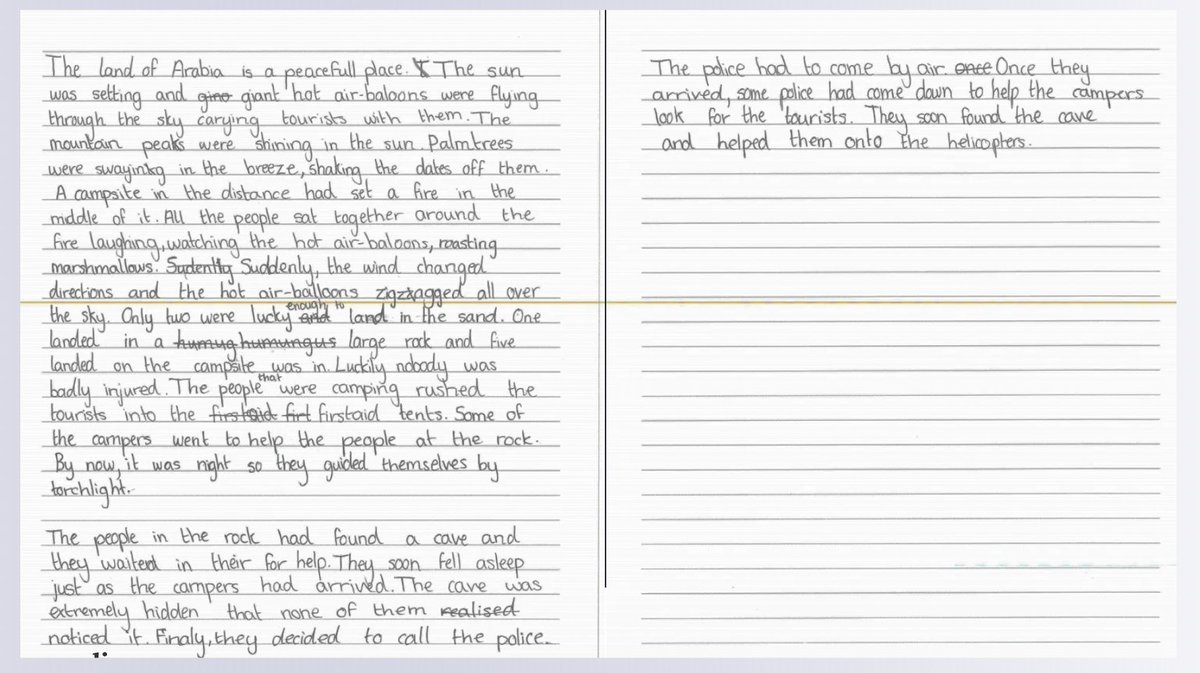 The land of Arabia is a peacefull place. T The sun
was setting and gino giant hot air-baloons were flying
through the sky carying tourists with them. The
mountain peaks were shining in the sun. Palmtrees
were swaying in the breeze, shaking the dates off them.
A campsite in the distance had set a fire in the
middle of it. All the people sat together around the
fire laughing, watching the hot air-baloons, roasting
marshmallows. Sudently Suddenly, the wind changed
directions and the hot air-balloons zigzagged all over
the sky. Only two were lucky and enough to land in the sand. One
landed in a humug humungus large rock and five
landed on the campsite was in. Luckily nobody was
badly injured. The people that were camping rushed the
tourists into the firstaid firt firstaid tents. Some of
the campers went to help the people at the rock.
By now, it was night so they guided themselves by
torchlight.
The people in the rock had found a cave and
they waited in their for help. They soon fell asleep
just as the campers had arrived. The cave was
extremely hidden that none of them realised
noticed it. Finaly, they decided to call the police.
The police had to come by air. once Once they
arrived, some police had come down to help the campers
look for the tourists. They soon found the cave
and helped them onto the helicopters.